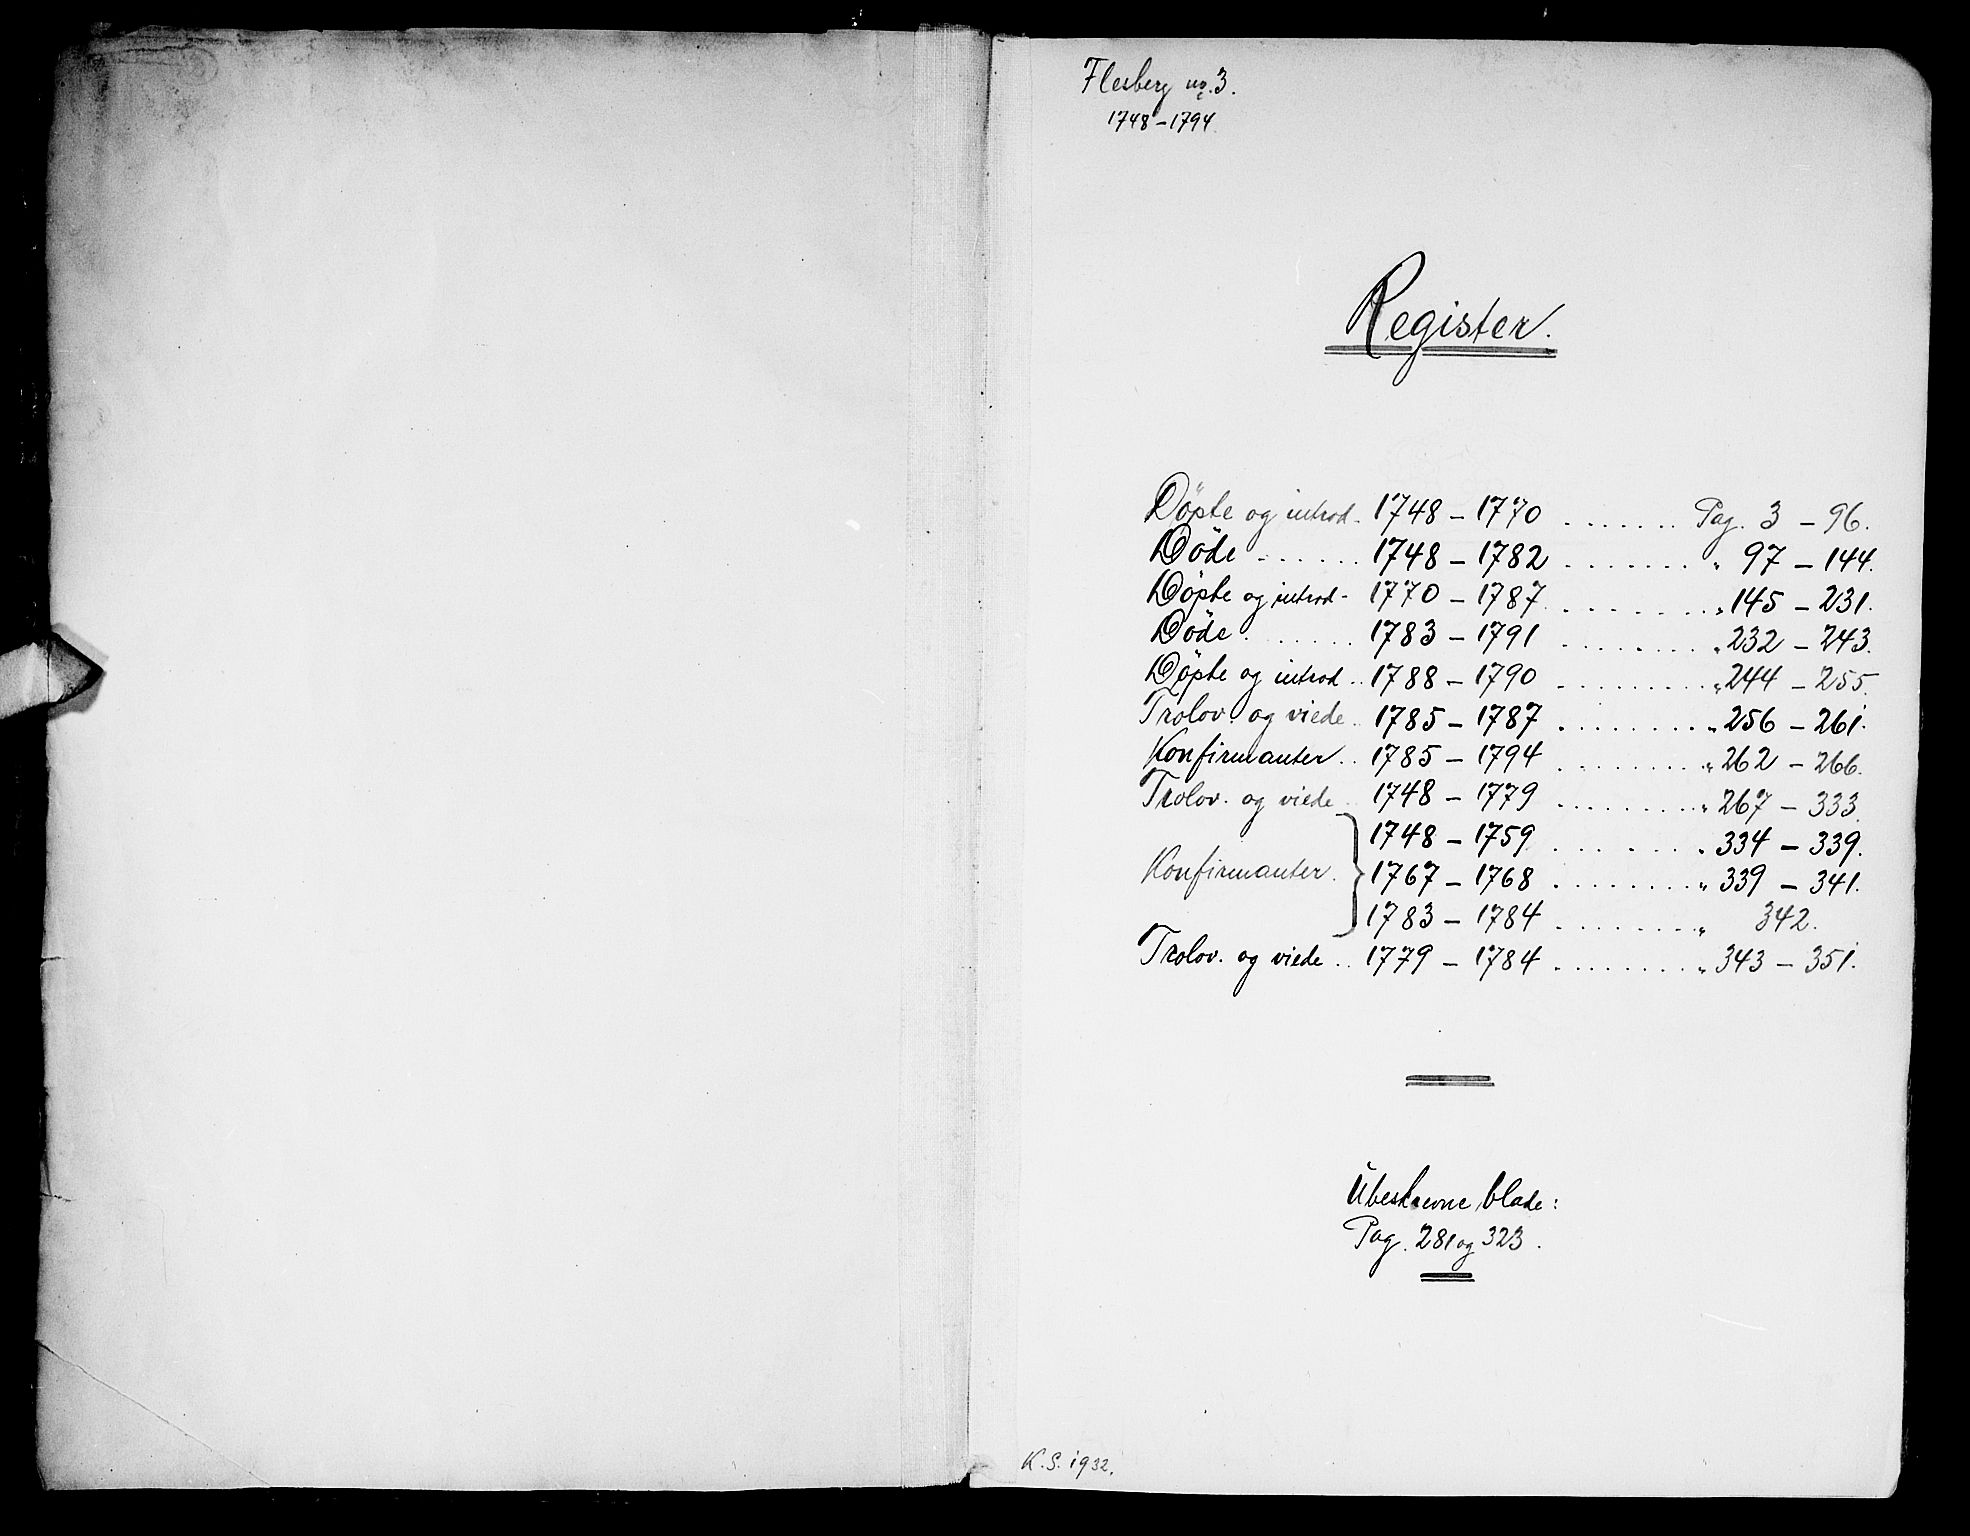 Flesberg nr. 3.
1748-1794
Register.
Döpte og introd. 1748 - 1770 ....... Pag. 3 - 96.
Döde ...... 1748 - 1782 ........ " 97 - 144.
Döpte og introd. 1770 - 1787 ........ " 145 - 231.
Döde. ...... 1783 - 1791 ........ " 232 - 243.
Döpte og introd.. 1788 - 1790 ........ " 244 - 255.
Trolov. og viede.. 1785 - 1787 ........ " 256 - 261.
Konfirmanter.. 1785 - 1794 ........ " 262 - 266.
Trolov. og viede.. 1748 - 1779 ........ " 267 - 333.
1748 - 1759 ........ " 334 - 339.
Konfirmanter. } 1767 - 1768 ........ " 339 - 341.
1783 - 1784 ........ " 342.
Trolov. og viede.. 1779 - 1784 ........ " 343 - 351.
Ubeskrevne blade:
Pag. 281 og 323.
K.S. 1932.